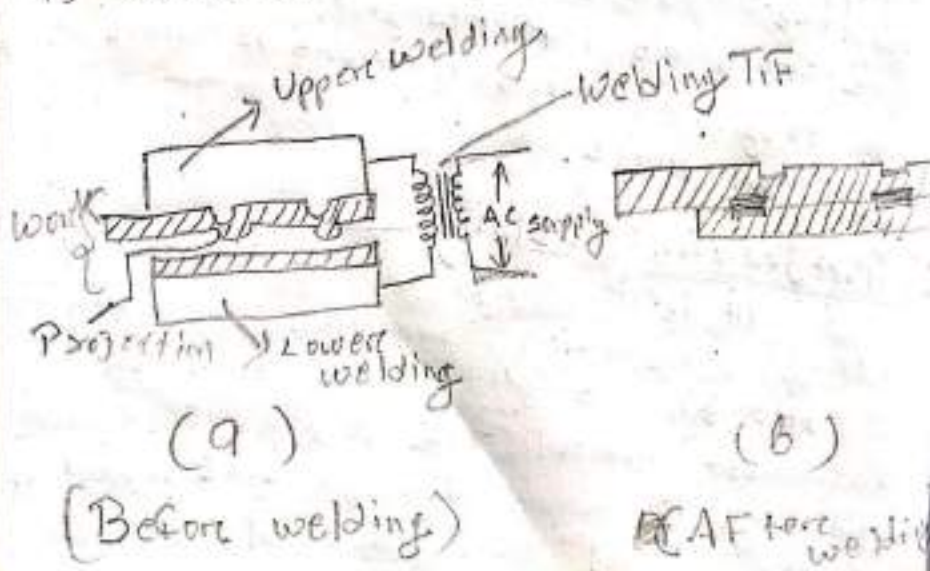 Uppere welding
Welding T/F
Work
AC supply
Projection
Lowere
welding
(a)
(b)
(Before welding)
(AFtere
welding